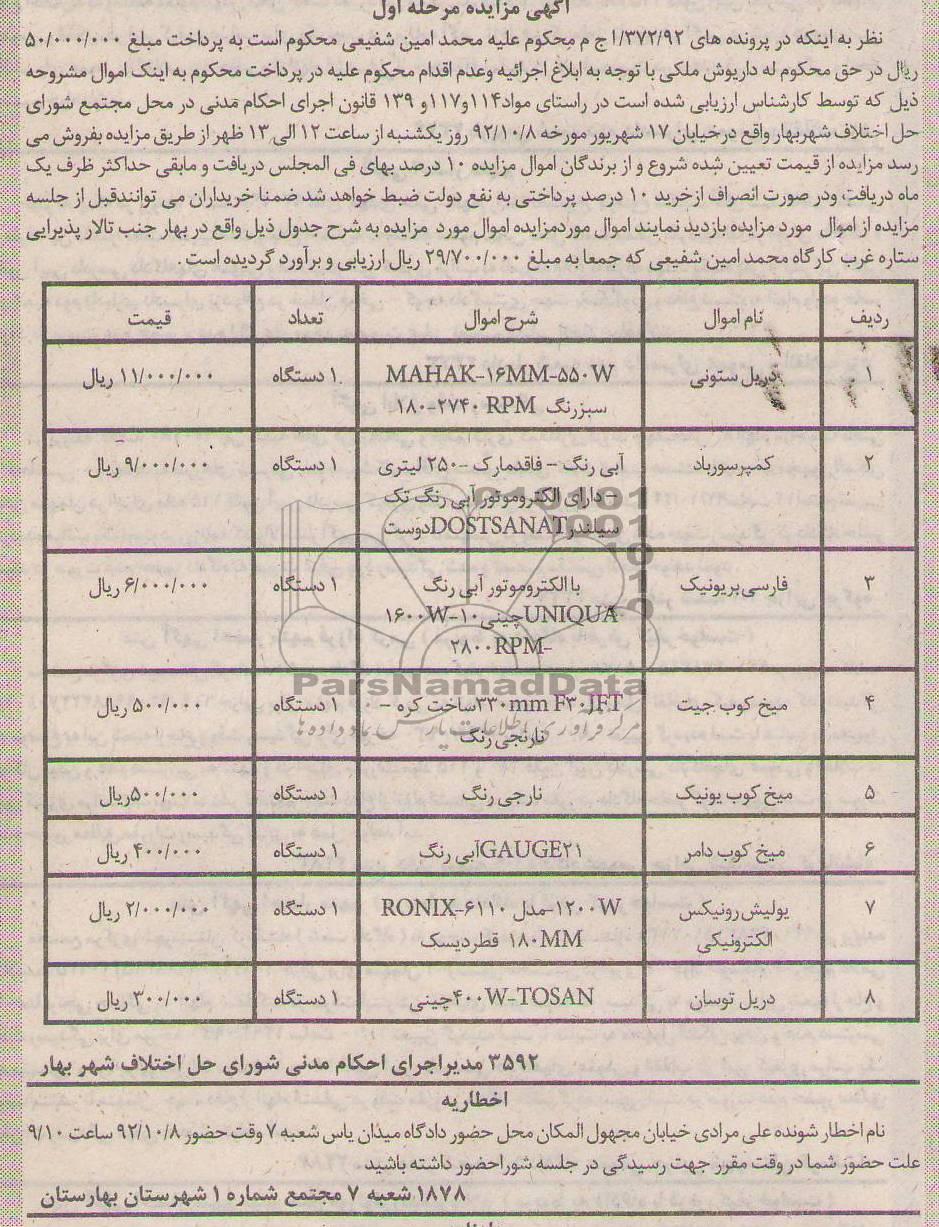 آگهی مزایده مرحله اول
نظر به اینکه در پرونده های ۱/۳۷۲/۹۲ ج م محکوم علیه محمد امین شفیعی محکوم است به پرداخت مبلغ ۵۰/۰۰۰/۰۰۰
ریال در حق محکوم له داریوش ملکی با توجه به ابلاغ اجرائیه وعدم اقدام محکوم علیه در پرداخت محکوم به اینک اموال مشروحه
ذیل که توسط کارشناس ارزیابی شده است در راستای مواد۱۱۴و۱۱۷و ۱۳۹ قانون اجرای احکام مدنی در محل مجتمع شورای
حل اختلاف شهربهار واقع درخیابان ۱۷ شهریور مورخه ۹۲/۱۰/۸ روز یکشنبه از ساعت ۱۲ الی ۱۳ ظهر از طریق مزایده بفروش می
رسد مزایده از قیمت تعیین شده شروع و از برندگان اموال مزایده ۱۰ درصد بهای فی المجلس دریافت و مابقی حداکثر ظرف یک
ماه دریافت ودر صورت انصراف ازخرید ۱۰ درصد پرداختی به نفع دولت ضبط خواهد شد ضمنا خریداران می توانندقبل از جلسه
مزایده از اموال مورد مزایده بازدید نمایند اموال موردمزایده اموال مورد مزایده به شرح جدول ذیل واقع در بهار جنب تالار پذیرایی
ستاره غرب کارگاه محمد امین شفیعی که جمعا به مبلغ ۲۹/۷۰۰/۰۰۰ ریال ارزیابی و برآورد گردیده است.
ردیف نام اموال شرح اموال تعداد قیمت
۱ دریل ستونی MAHAK-۱۶MM-۵۵۰W ۱ دستگاه ۱۱/۰۰۰/۰۰۰ ریال
سبزرنگ ۱۸۰-۲۷۴۰ RPM
۲ کمپرسورباد آبی رنگ - فاقدمارک -۲۵۰ لیتری ۱ دستگاه ۹/۰۰۰/۰۰۰ ریال
- دارای الکتروموتور آبی رنگ تک
سیلندر DOSTSANATدوست
۳ فارسی بریونیک باالکتروموتور آبی رنگ ۱ دستگاه ۶/۰۰۰/۰۰۰ ریال
UNIQUAچینی۱۰-۱۶۰۰W
۲۸۰۰RPM-
۴ میخ کوب جیت ۳۳۰mm F۳۰JETساخت کره - ۱ دستگاه ۵۰۰/۰۰۰ ریال
نارنجی رنگ
۵ میخ کوب یونیک نارجی رنگ ۱ دستگاه ۵۰۰/۰۰۰ریال
۶ میخ کوب دامر GAUGE۲۱آبی رنگ ۱ دستگاه ۴۰۰/۰۰۰ ریال
۷ پولیش رونیکس ۱۲۰۰W-مدل RONIX-۶۱۱۰ ۱ دستگاه ۲/۰۰۰/۰۰۰ ریال
الکترونیکی ۱۸۰MM قطردیسک
۸ دریل توسان ۴۰۰W-TOSANچینی ۱ دستگاه ۳۰۰/۰۰۰ ریال
ParsNamadData
مرکز فرآوری اطلاعات پارس نماد داده ها
۳۵۹۲ مدیراجرای احکام مدنی شورای حل اختلاف شهر بهار
اخطاریه
نام اخطار شونده علی مرادی خیابان مجهول المکان محل حضور دادگاه میدان یاس شعبه ۷ وقت حضور ۹۲/۱۰/۸ ساعت ۹/۱۰
علت حضور شما در وقت مقرر جهت رسیدگی در جلسه شوراحضور داشته باشید
۱۸۷۸ شعبه ۷ مجتمع شماره ۱ شهرستان بهارستان